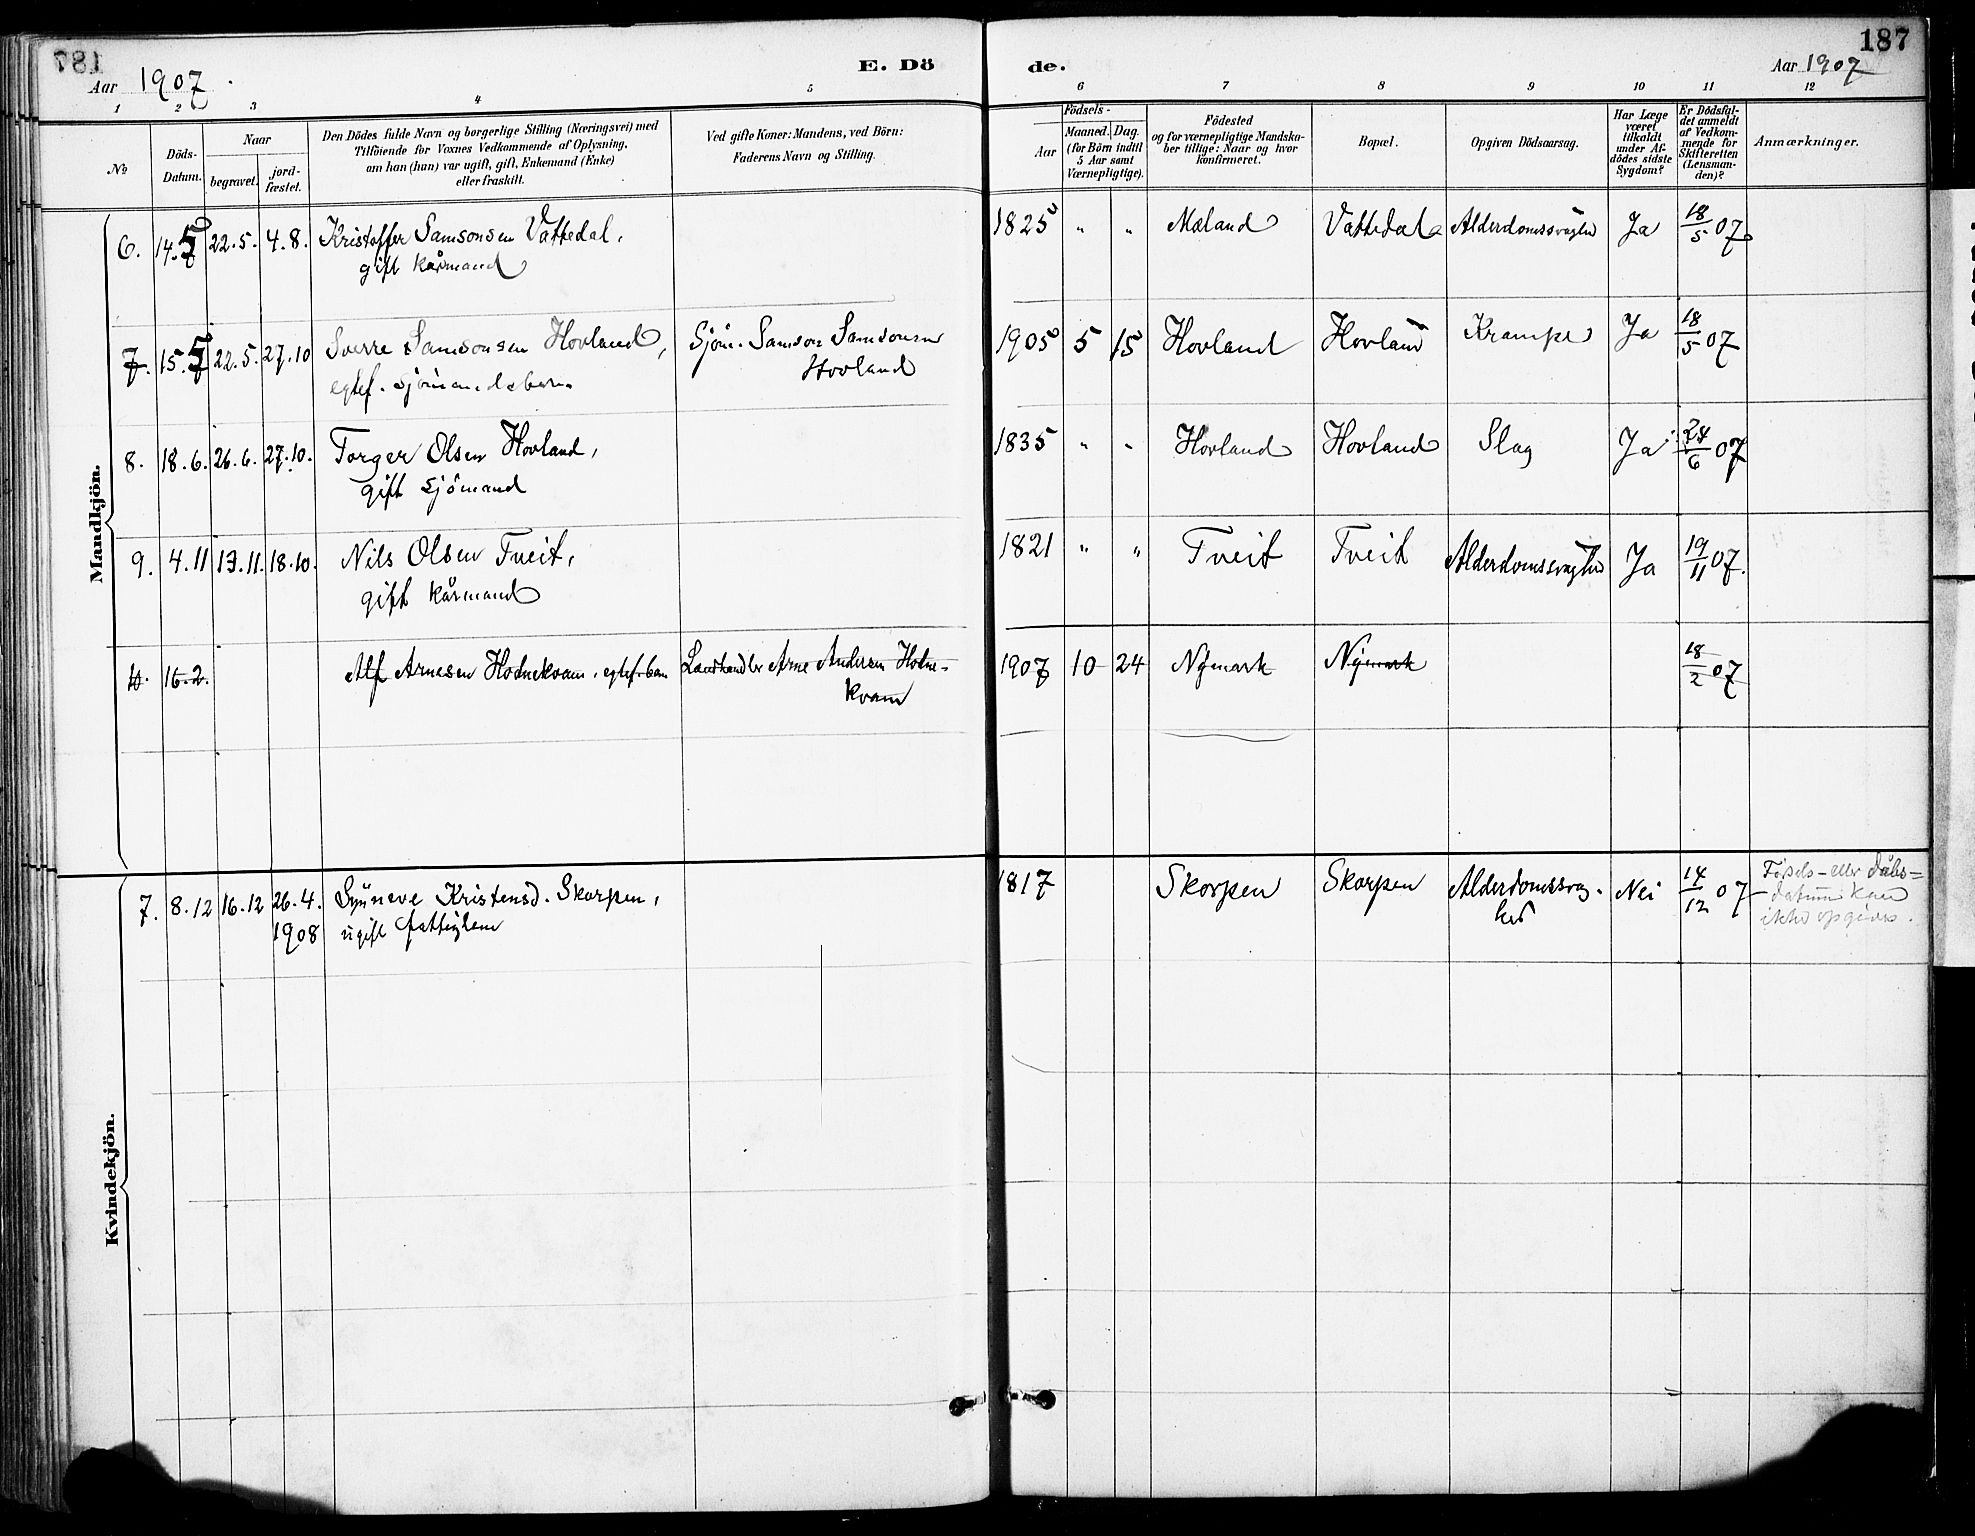 187
Aar 1907.
E. Döde.
187
Aar 1907
1 2 3 4 5 6 7 8 9 10 11 12
No
Döds-Datum.
Naar
begravet.
jord-fæstet.
Den Dödes fulde Navn og borgerlige Stilling (Næringsvei) med
Tilföiende for Voxnes Vedkommende af Oplysning,
om han (hun) var ugift, gift, Enkemand (Enke)
eller fraskilt.
Ved gifte Koner: Mandens, ved Börn:
Faderens Navn og Stilling.
Födsels-
Aar
Maaned. Dag.
(for Börn indtil
5 Aar samt
Værnepligtige).
Födested
og for værnepligtige Mandska-
ber tillige: Naar og hvor
konfirmeret.
Bopæl.
Opgiven Dödsaarsag.
Har Læge
været
tilkaldt
under Af-
dödes sidste
Sygdom?
Er Dödsfal-
det anmeldt
af Vedkom-
mende for
Skifteretten
(Lensman-
den)?
Anmærkninger.
Mandkjön.
6. 14.5 22.5. 4.8. Kristoffer Samsonsen Vattedal,
gift kårmand
1825 " " Mæland Vattedal Alderdomssvaghed Ja 18/5 07
7. 15.5 22.5. 27.10 Sverre Samsonsen Hovland,
egtef. sjömandsbarn
Sjöm. Samson Samsonsen
Hovland
1905 5 15 Hovland Hovland Krampe Ja 18/5 07
8. 18.6. 26.6. 27.10. Torger Olsen Hovland,
gift sjömand
1835 " " Hovland Hovland Slag Ja 24/6 07
9. 4.11 13.11. 18.10. Nils Olsen Tveit,
gift kårmand
1821 " " Tveit Tveit Alderdomssvaghed Ja 19/11 07.
10. 16.2. Alf Arnesen Hodnekvam, egtef. barn
Landhandler Arne Andersen Hodne-
kvam
1907 10 24 Nymark Nymark 18/2 07
Kvindekjön.
7. 8.12 16.12 26.4.
1908
Synneve Kristensd. Skorpen,
ugift fattiglem
1817 Skorpen Skorpen Alderdomssvag-
hed
Nei 14/12 07
Födsels- eller dåbs-
datum kan
ikke opgives.